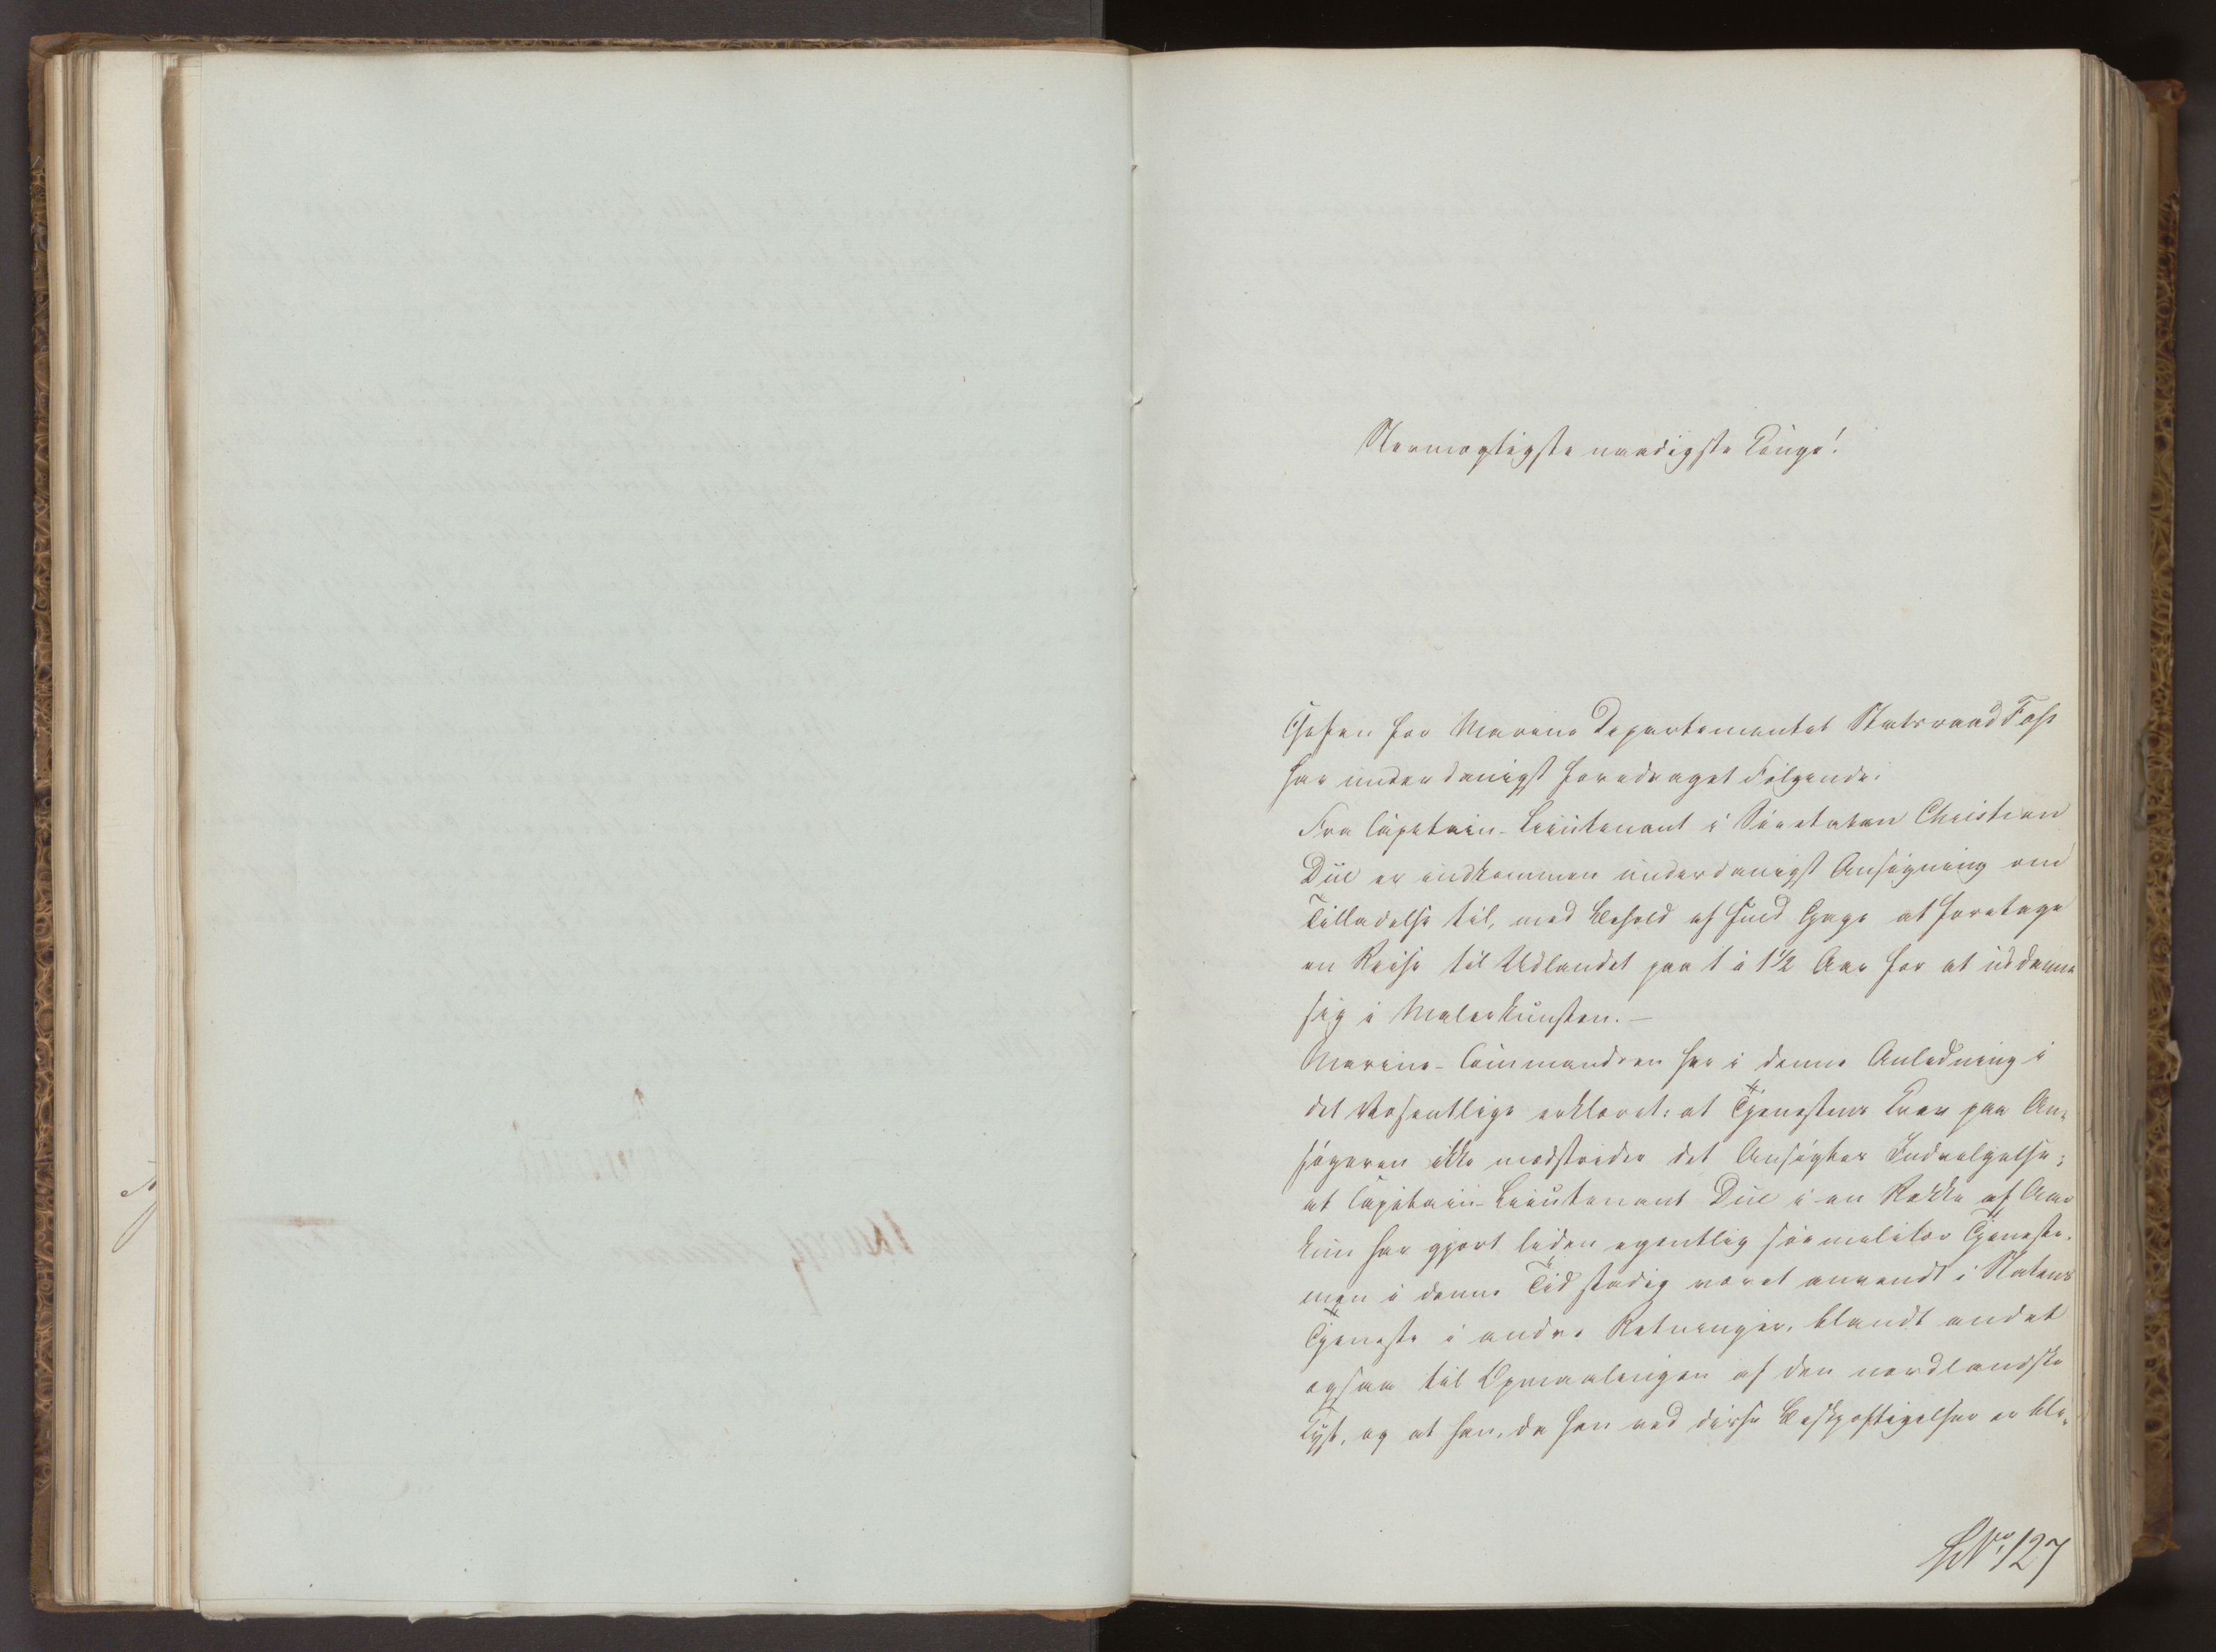 Stormægtigste naadigste Konge!
Chefen for Marine Departementet Statsraad Foss
har underdanigst foredraget Følgende:
Fra Capitain-Lieutenant i Søe etaten Christian
Due er indkommen underdanigst Ansøgning om
Tilladelse til, med Behold af fuld Gage at foretage
en Reise til Udlandet paa 1 à 1½ Aar for at uddanne
sig i Malerkunsten. —
Marine-Commandoen har i denne Anledning i
det Væsentlige erklæret: at Tjenestens Krav paa An-
søgeren ikke modstrider det Ansøgtes Indvilgelse;
at Capitain-Lieutenant Due i en Række af Aar
kun har gjort liden egentlig sømilitær Tjeneste,
men i denne Tid stadig været anvendt i Statens
Tjeneste i andre Retninger, blandt andet
ogsaa til Opmaalingen af den nordlandske
Kyst, og at han, da han ved disse Beskjæftigelser er ble-
No 127